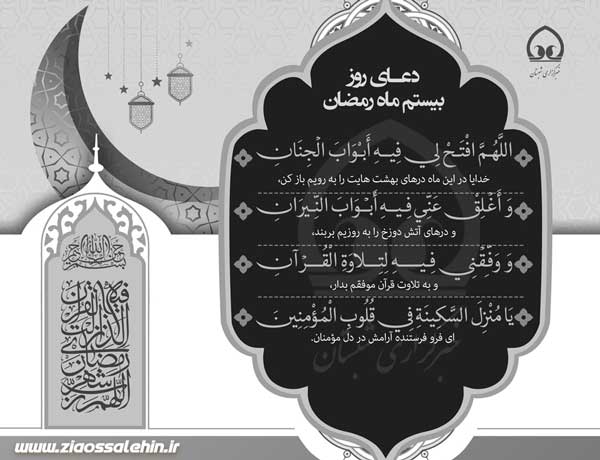 خبرگزاری شبستان
دعای روز
بیستم ماه رمضان
اللَّهُمَّ افْتَحْ لِي فِيهِ أَبْوَابَ الْجِنَانِ
خدایا در این ماه درهای بهشت هایت را به رویم باز کن،
وَ أَغْلِقْ عَنِّي فِيهِ أَبْوَابَ النِّيرَانِ
و درهای آتش دوزخ را به روزیم بربند،
وَ وَفِّقْنِي فِيهِ لِتِلَاوَةِ الْقُرْآنِ
و به تلاوت قرآن موفقم بدار،
يَا مُنْزِلَ السَّكِينَةِ فِي قُلُوبِ الْمُؤْمِنِينَ
ای فرو فرستنده آرامش در دل مؤمنان.
خبرگزاری شبستان
بسم الله الرحمن الرحیم
اللهم رب شهر رمضان الذی انزلت فیه القرآن
www.ziaossalehin.ir